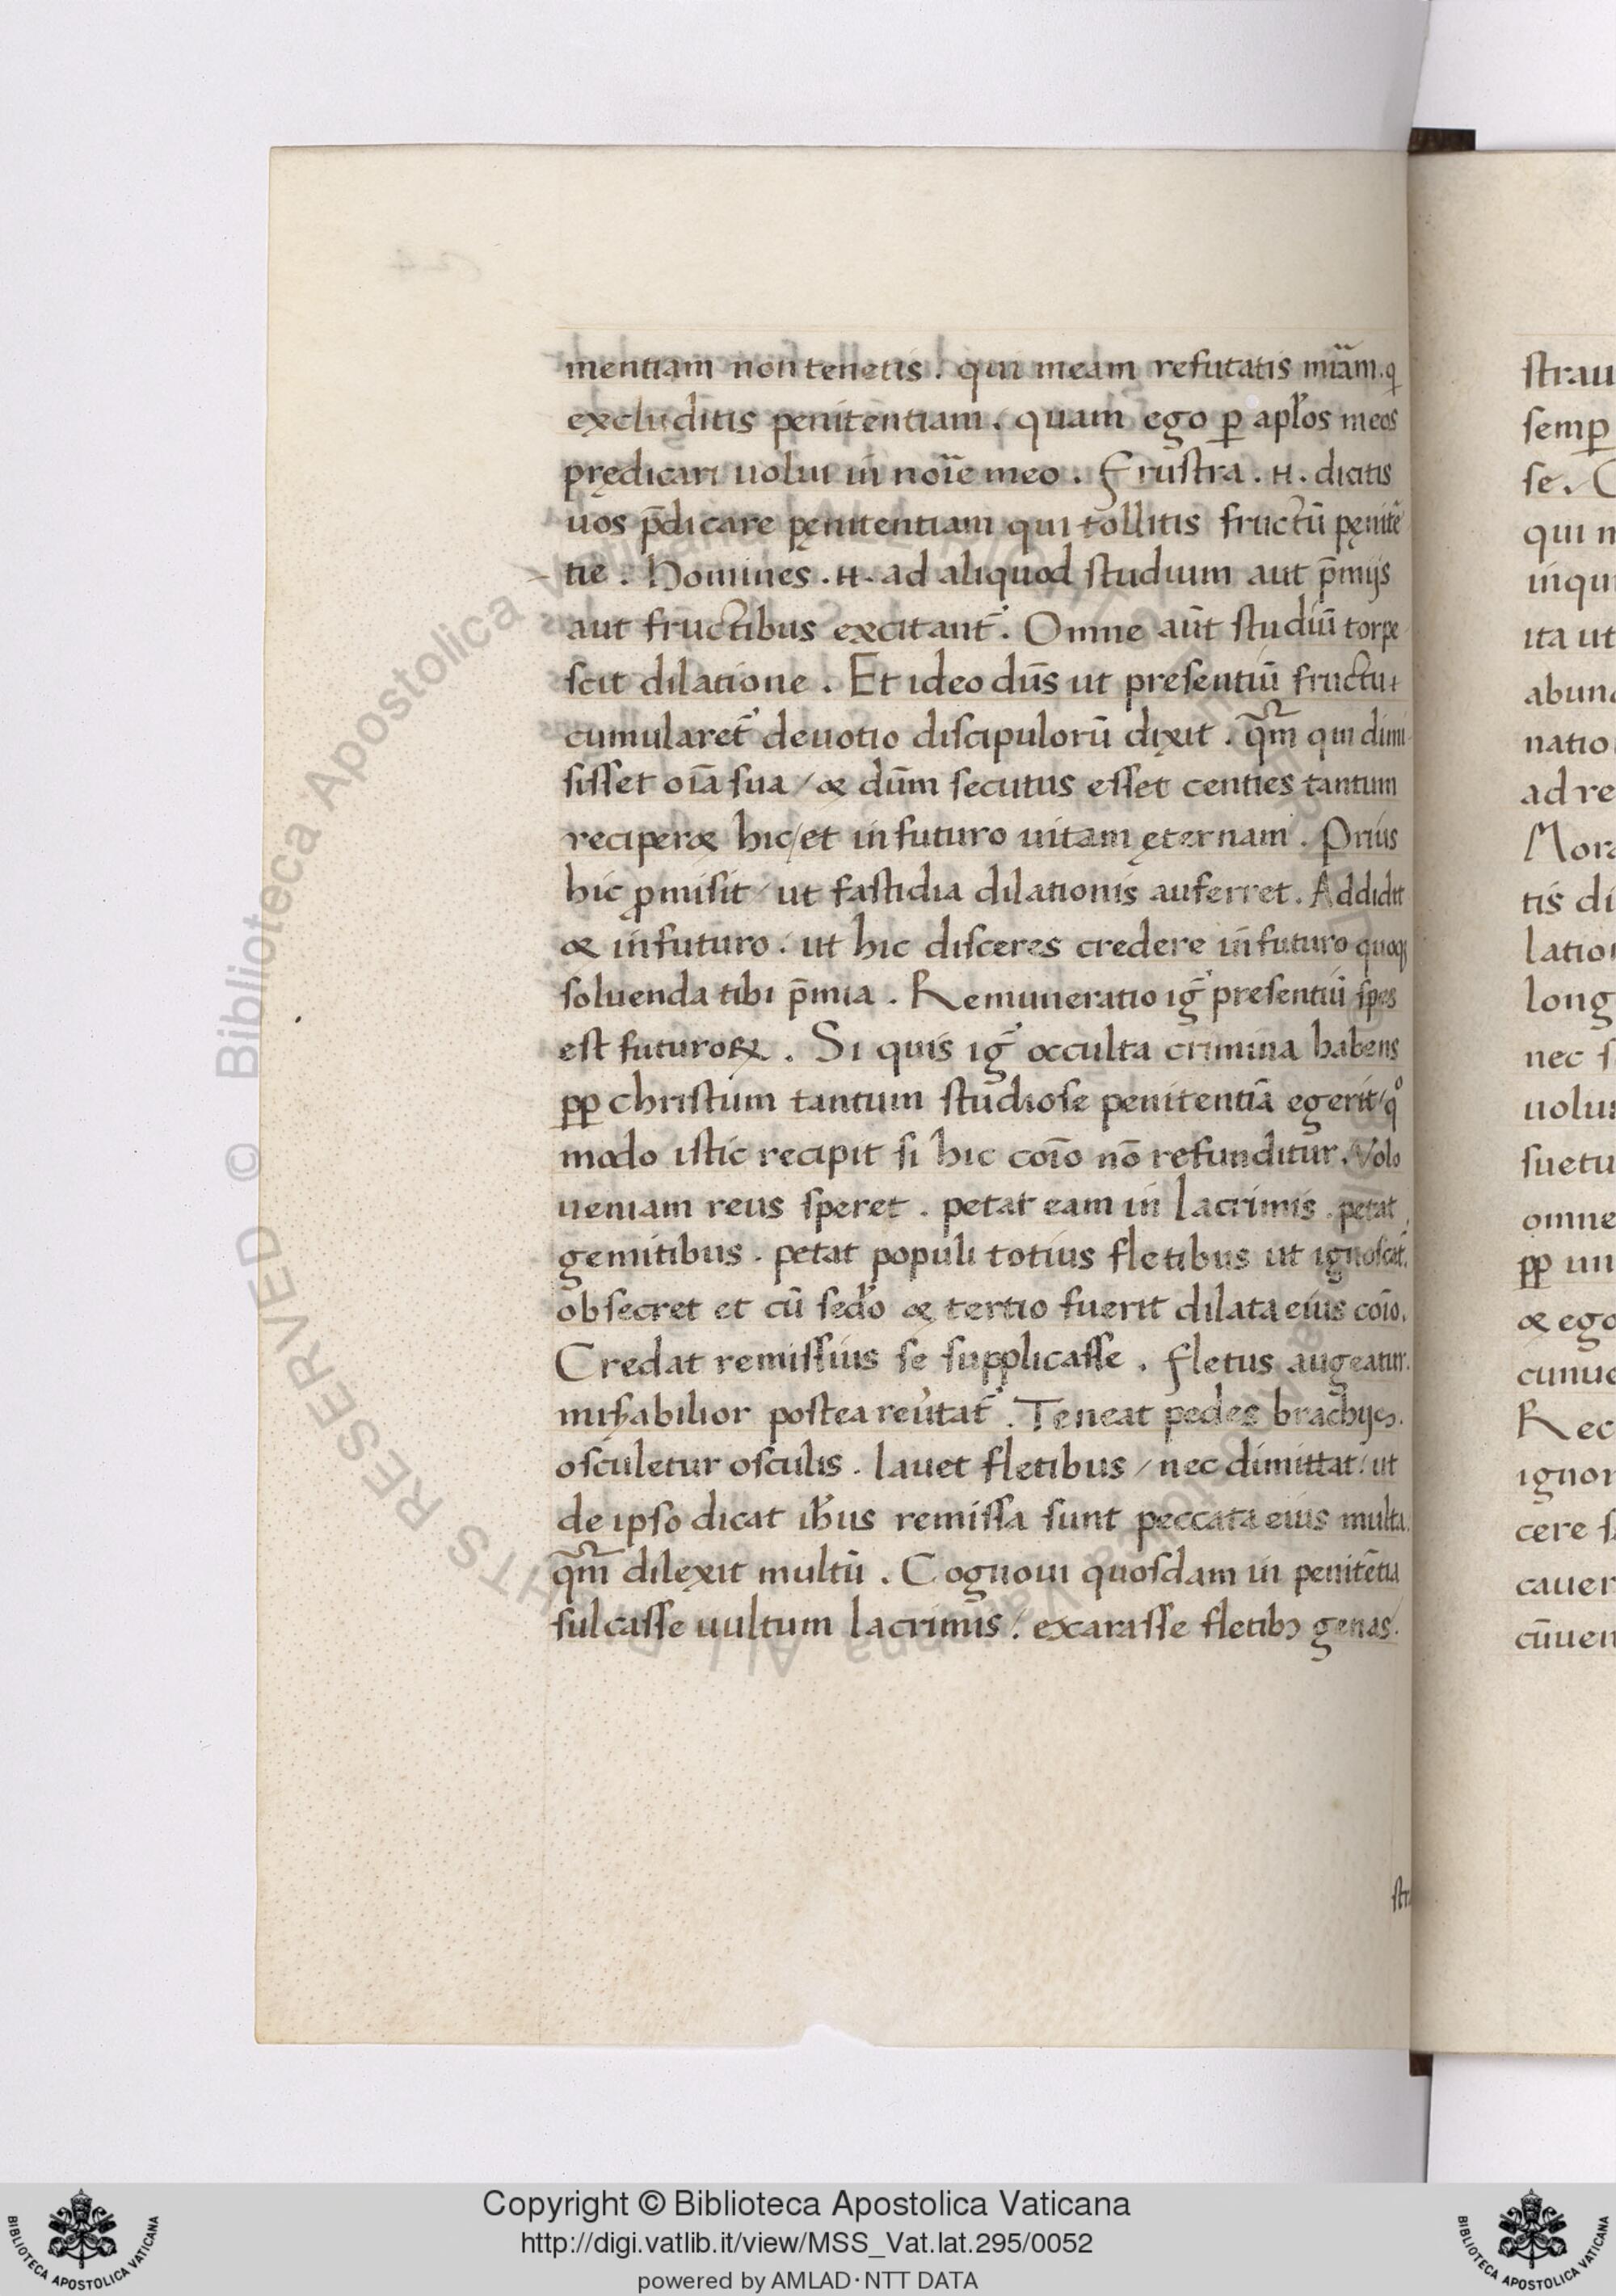 mentiam non tenetis. qui meam refutatis miãm. q
excluditis penitentiam. quam ego ꝑ apl'os meos
prędicari uolui in noĩe meo. Frustra. H. dicitis
uos p̃dicare pęnitentiam qui tollitis fructũ pęnitẽ
tie. Homines. H. ad aliquod studium aut p̃mijs
aut fructibus excitant᷑. Omne aũt studiũ torpe
scit dilatione. Et ideo dũs ut presentiũ fructu
cumularet᷑ deuotio discipulorũ dixit. qm̃ qui dimi
sisset oĩa sua / & dũm secutus esset centies tantum
reciper& hic / et in futuro uitam ęternam. Prius
hic ꝓmisit / ut fastidia dilationis auferret. Addidit
& in futuro. ut hic disceres credere in futuro quoqꝫ
soluenda tibi p̃mia. Remuneratio ig᷑ presentiũ spes
est futuroꝝ. Si quis ig᷑ occulta crimina habens
ꝓꝑ christum tantum studiose penitentiã egerit / qº
modo istic recipit si hic coĩo nõ refunditur. Volo
ueniam reus speret. petat eam in lacrimis. petat
gemitibus. petat populi totius fletibus ut ignoscat᷑.
obsecret et cũ secd'o & tertio fuerit dilata eius coĩo.
Credat remissius se supplicasse. fletus augeatur.
mis̃abilior postea reũtat᷑. Teneat pedes brachijs.
osculetur osculis. lauet fletibus / nec dimittat. ut
de ipso dicat ih'us remissa sunt peccata eius multa.
qm̃ dilexit multũ. Cognoui quosdam in penitẽtia
sulcasse uultum lacrimis. exarasse fletibꝰ genas.
strau
semꝑ
se. C
qui n
inqui
ita ut
abun
natio
ad re
Mora
tis di
latio
long
nec s
uolu
suetu
omne
ꝓꝑ un
& ego
cunue
Rec
ignor
cere s
cauer
cũuen
© Biblioteca Apostolica Vaticana
ALL RIGHTS RESERVED
Copyright © Biblioteca Apostolica Vaticana
http://digi.vatlib.it/view/MSS_Vat.lat.295/0052
powered by AMLAD·NTT DATA
BIBLIOTECA APOSTOLICA VATICANA
BIBLIOTECA APOSTOLICA VATICANA